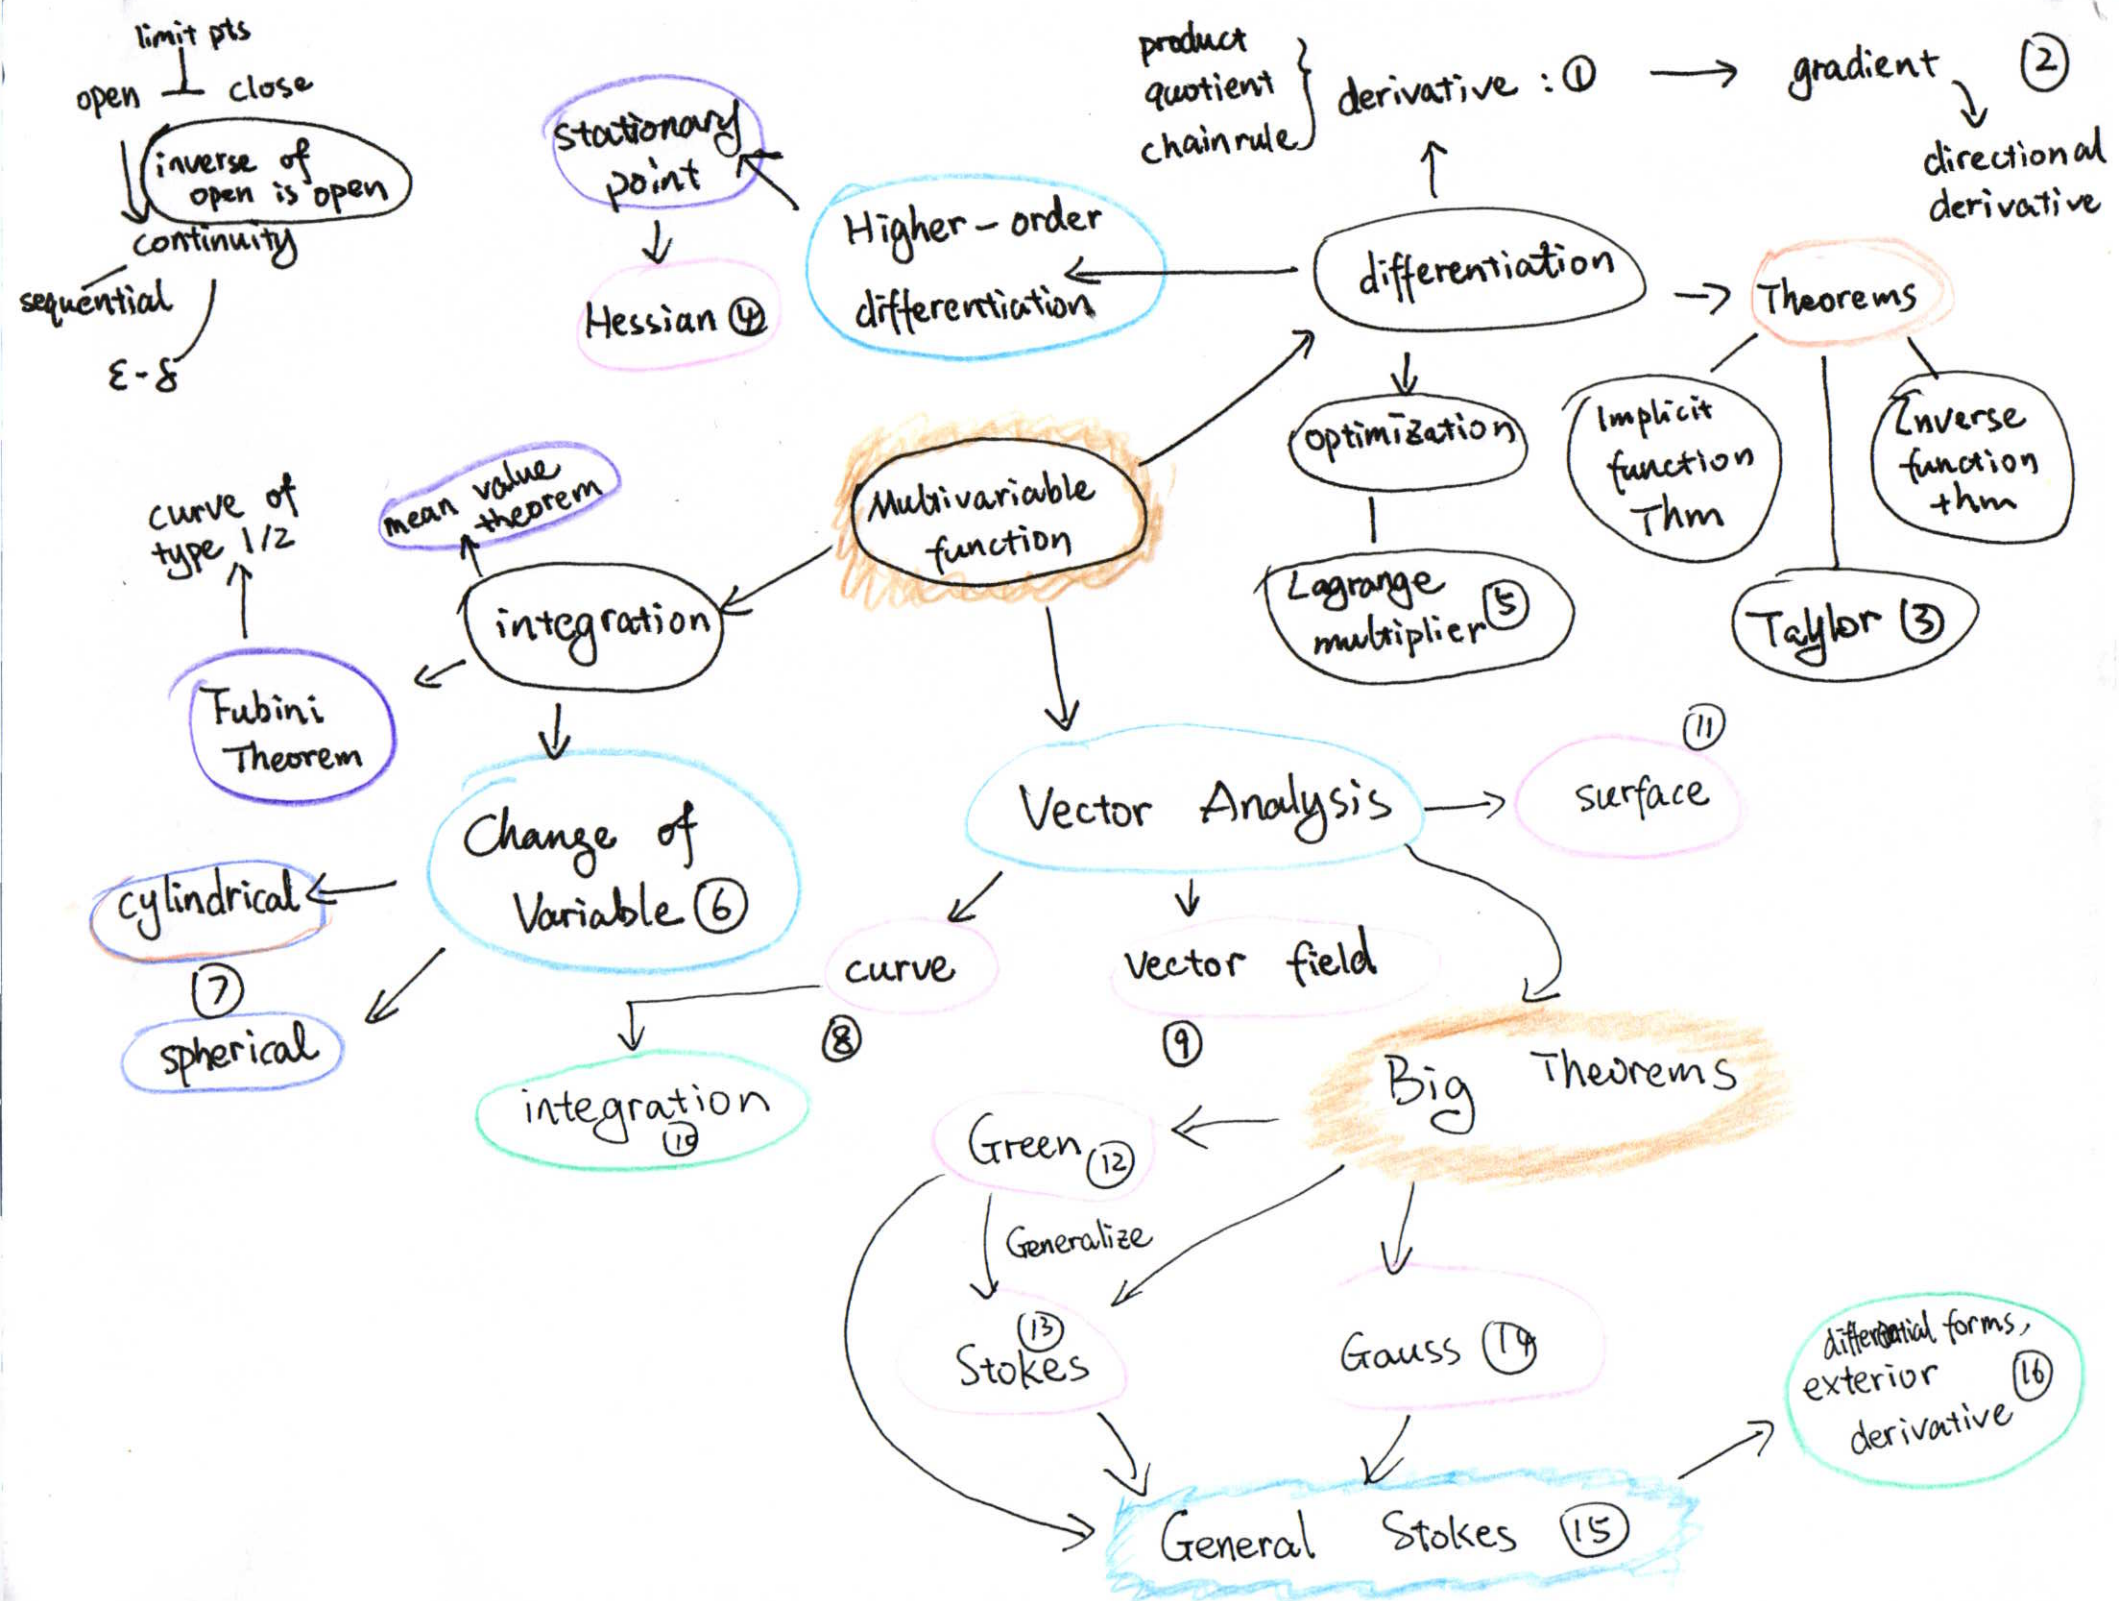 limit pts
open
close
inverse of
open is open
continuity
sequential
ε-δ
stationary
point
Hessian ④
Higher-order
differentiation
product
quotient
chain rule
derivative : ①
gradient
②
directional
derivative
differentiation
Theorems
Implicit
function
Thm
Inverse
function
thm
Taylor ③
optimization
Lagrange
multiplier ⑤
Multivariable
function
mean value
theorem
curve of
type 1/2
integration
Fubini
Theorem
Change of
Variable ⑥
cylindrical
⑦
spherical
Vector Analysis
⑪
surface
curve
⑧
vector field
⑨
integration
⑩
Big Theorems
Green ⑫
Generalize
⑬
Stokes
Gauss ⑭
General Stokes ⑮
differential forms,
exterior ⑯
derivative